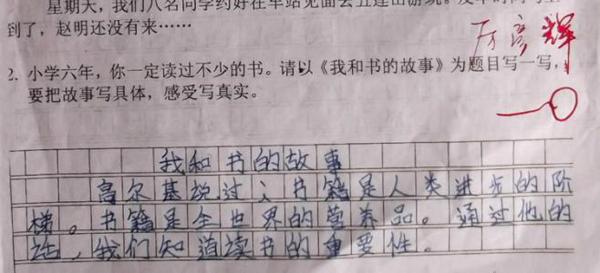 星期天，我们八名同学约好在车站见面去五莲山游玩。
到了，赵明还没有来……
2. 小学六年，你一定读过不少的书。请以《我和书的故事》为题目写一写，
要把故事写具体，感受写真实。
我和书的故事
高尔基说过，书籍是人类进步的阶
梯。书籍是全世界的营养品。通过他的
话，我们知道读书的重要性。